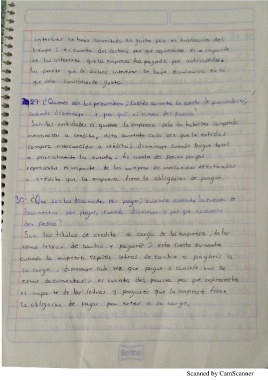 intereses se haya convertido en gasto por el transcurso del
tiempo; es cuenta del activo por que representa el importe
de los intereses que la empresa ha pagado por anticipado
la parte que de dichos intereses se haya
que convirtiendo gasto.
29: ¿Quiénes son los proveedores, cuándo aumenta la cuenta de proveedores,
cuándo disminuye y por qué es cuenta del pasivo?
Son las entidades a quienes la empresa por haberles comprado
mercancías a crédito, esta aumenta cada vez que la entidad
compra mercancías a crédito; disminuye cuando pague total
o parcialmente la cuenta. Es cuenta del pasivo porque
representa el importe de las compras de mercancías efectuadas
a crédito que la empresa tiene la obligación de pagar.
30: ¿Que son los documentos por pagar, cuando aumenta la cuenta de
documentos por pagar, Cuando disminuye y por que es cuenta
del pasivo?
Son los títulos de crédito a cargo de la empresa, tales
como letras de cambio y pagarés; esta cuenta aumenta
cuando la empresa expida letras de cambio o pagarés a
su cargo, disminuye cada vez que pague o cancele uno de
estos documentos, es cuenta del pasivo por que representa
el importe de las letras y pagarés que la empresa tiene
la obligación de pagar por estar a su cargo.
Scribe
Scanned by CamScanner